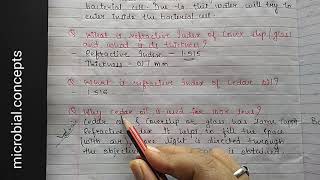 bacterial cell. Due to this water will try to
enter inside the bacterial cell.
Q What is refractive Index of cover slip/glass
and what is its thickness?
- Refractive Index - 1.515
Thickness - 0.17 mm
Q What is refractive index of Cedar oil?
- 1.515
Q Why cedar oil is used for 100x lens?
- Cedar oil & Coverslip or glass has same
Refractive index. It help to fill the space
with air more light is directed through
the objective is obtained
microbial concepts